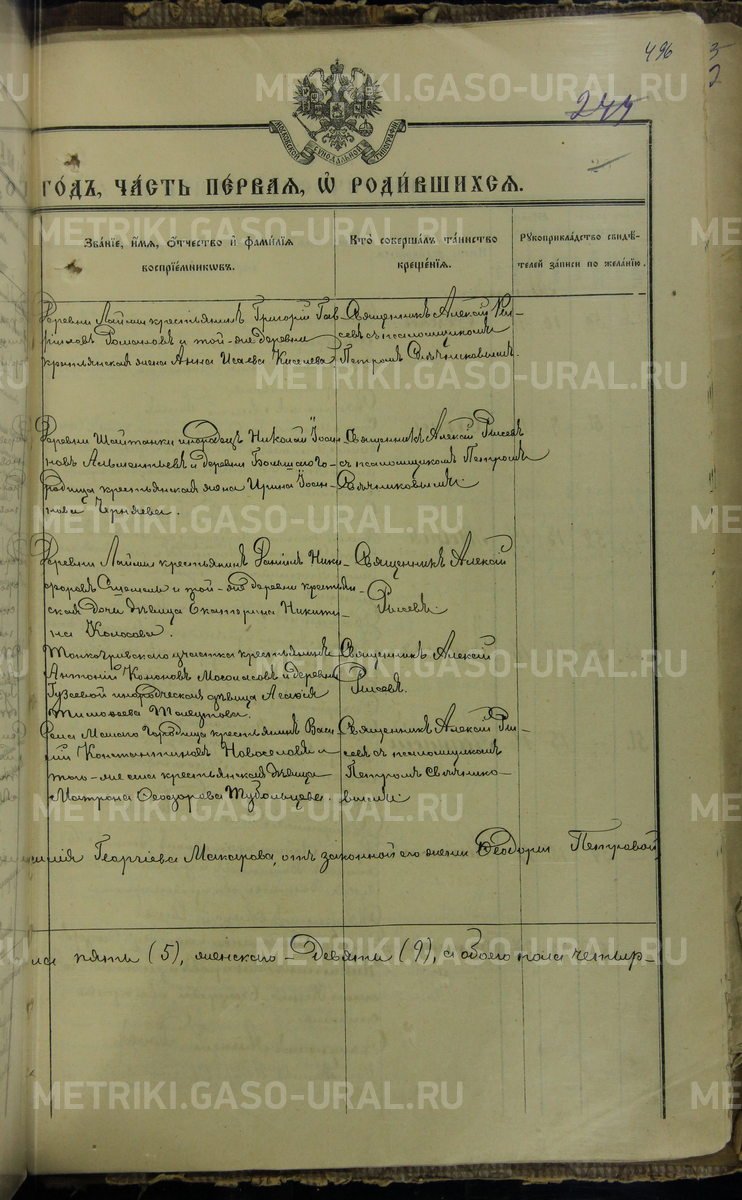 496
3
2
МОСКОВСКОЙ СѴНОДАЛЬНОЙ ТИПОГРАФІИ
ГО́ДЪ, ЧА́СТЬ ПЕ́РВАЯ, Ѿ РОДИ́ВШИХСЯ.
Зва́нїе, и́мя, ѻ҆́тчество и҆ фами́лїя воспрїе́мниковъ.
Кто̀ соверша́лъ та́инство креще́нїя.
Рꙋкоприкла́дство свидѣ́телей за́писи по жела́нїю.
Деревни Лайми крестьянинъ Григорій Гав-
риловъ Романовъ и той-же деревни
крестьянская жена Анна Исаева Киселева
Священникъ Алексій Ри-
севъ съ псаломщикомъ
Петромъ Свѣчниковымъ.
Деревни Шайтанки инородецъ Николай Іоан-
новъ Альментьевъ и деревни Большаго Го-
родища крестьянская жена Ирина Іоан-
нова Черняева.
Священникъ Алексій Рисевъ
съ псаломщикомъ Петромъ
Свѣчниковымъ.
Деревни Лайми крестьянинъ Даніилъ Ники-
форовъ и той-же деревни крестьян-
ская дочь дѣвица Екатерина Никити-
на Колосова.
Священникъ Алексій
Рисевъ.
участка крестьянинъ
Антоній Кононовъ и деревни
Гузеевой инородческая дѣвица Агафія
Тимофеева
Священникъ Алексій
Рисевъ.
Села Малаго Городища крестьянинъ Васи-
лій Константиновъ Новоселовъ и
того-же села крестьянская дѣвица
Матрона Ѳеодорова Тубольцева.
Священникъ Алексій Ри-
севъ съ псаломщикомъ
Петромъ Свѣчнико-
вымъ.
Георгіева Макарова, отъ законной его жены Ѳеодоры Петровой,
ла пять (5), женскаго - девять (9), а обоего пола четыр-
METRIKI.GASO-URAL.RU